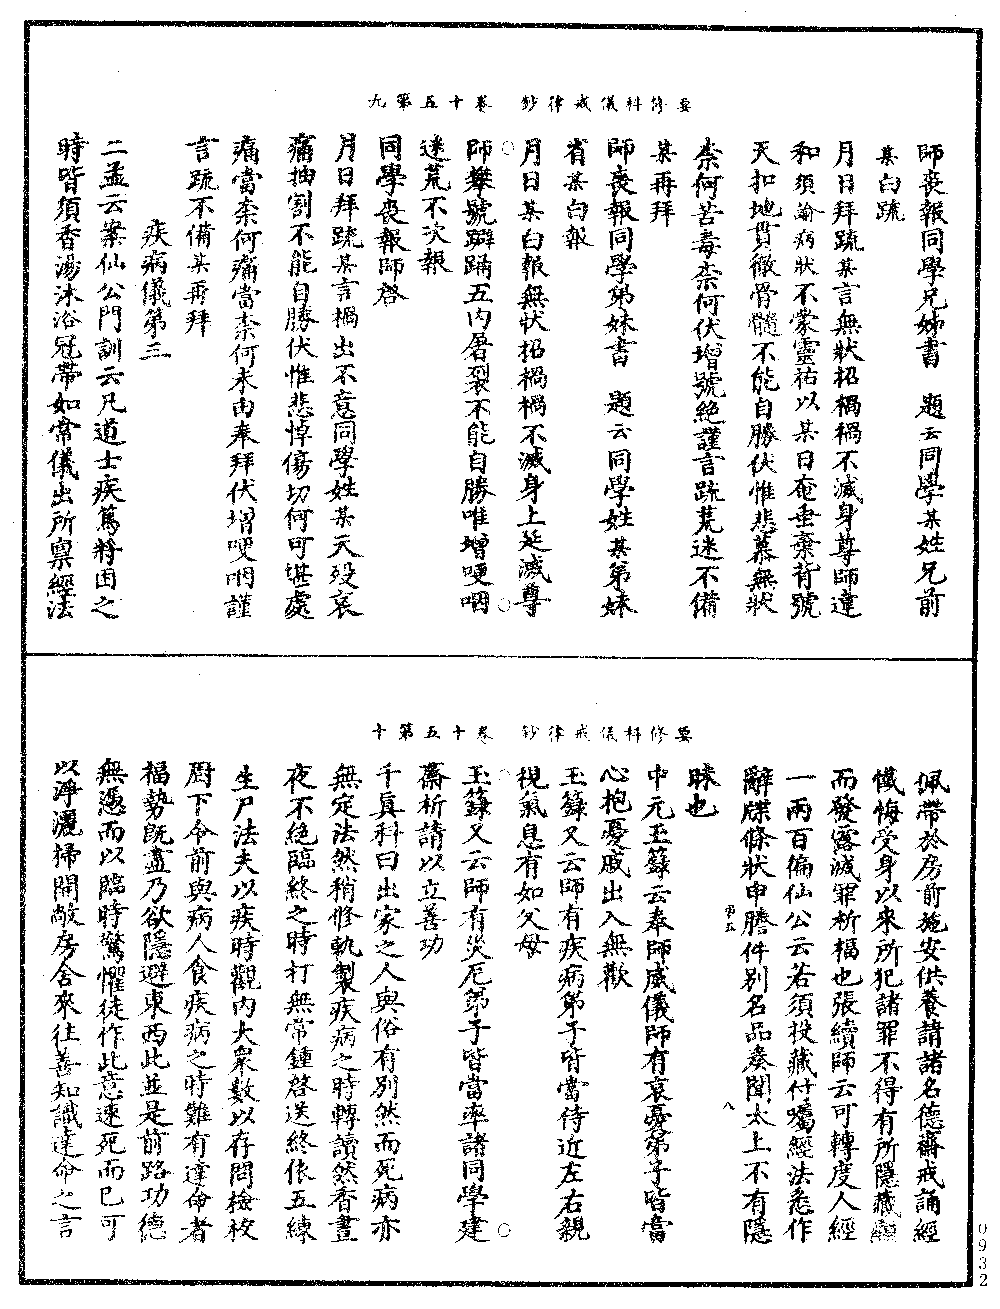 要修科儀戒律鈔　卷十五第九
師喪報同學兄姊書　題云同學某姓兄前
某白疏
月日拜疏某言無狀招禍禍不滅身尊師違
和須論病狀不蒙靈祐以某日奄垂棄背號
天扣地貫徹骨髓不能自勝伏惟悲慕無狀
柰何苦毒柰何伏增號絕謹言疏荒迷不備
某再拜
師喪報同學弟妹書　題云同學姓某弟妹
省某白報
月日某白報無狀招禍禍不滅身上延滅尊
師攀號擗踊五內屠裂不能自勝唯增哽咽
迷荒不次報
同學喪報師啓
月日拜疏某言禍出不意同學姓某夭殁哀
痛抽割不能自勝伏惟悲悼傷切何可堪處
痛當柰何痛當柰何未由奉拜伏增哽咽謹
言疏不備某再拜
疾病儀第三
二孟云案仙公門訓云凡道士疾篤將困之
時皆須香湯沐浴冠帶如常儀出所禀經法
要修科儀戒律鈔　卷十五第十
佩帶於房前施安供養請諸名德齋戒誦經
懺悔受身以來所犯諸罪不得有所隱藏
而發露滅罪祈福也張續師云可轉度人經
一兩百徧仙公云若須投藏付囑經法悉作
辭牒條狀申謄件別名品奏聞太上不有隱
昧也
第五
八
中元玉籙云奉師威儀師有哀憂弟子皆當
心抱憂慼出入無歡
玉籙又云師有疾病弟子皆當侍近左右親
視氣息有如父母
玉籙又云師有災厄弟子皆當率諸同學建
齋祈請以立善功
千真科曰出家之人與俗有別然而死病亦
無定法然稍修軌製疾病之時轉讀然香晝
夜不絕臨終之時打無常鍾啓送終依五練
生尸法夫以疾時觀內大衆數以存問檢校
厨下令前與病人食疾病之時難有達命者
福勢旣盡乃欲隱避東西此並是前路功德
無憑而以臨時驚懼徒作此意速死而已可
以淨灑掃開敞房舍來往善知識達命之言
0932